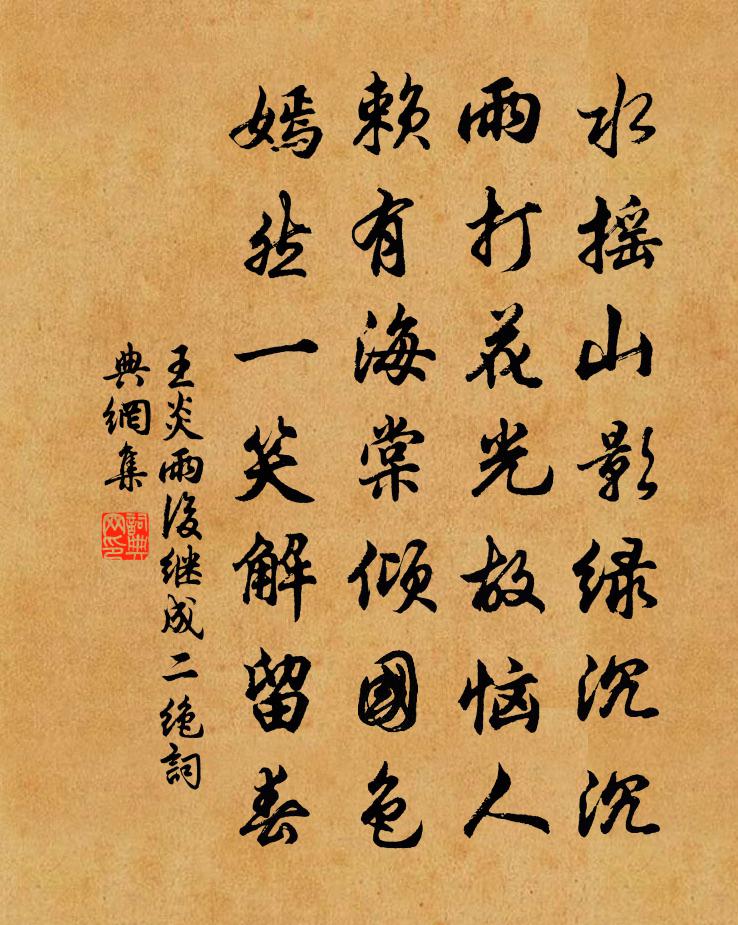 水摇山影绿沉沉
雨打花光故恼人
赖有海棠倾國色
嫣然一笑解留春
王炎雨後继成二绝詞
典網集
詞典
网印